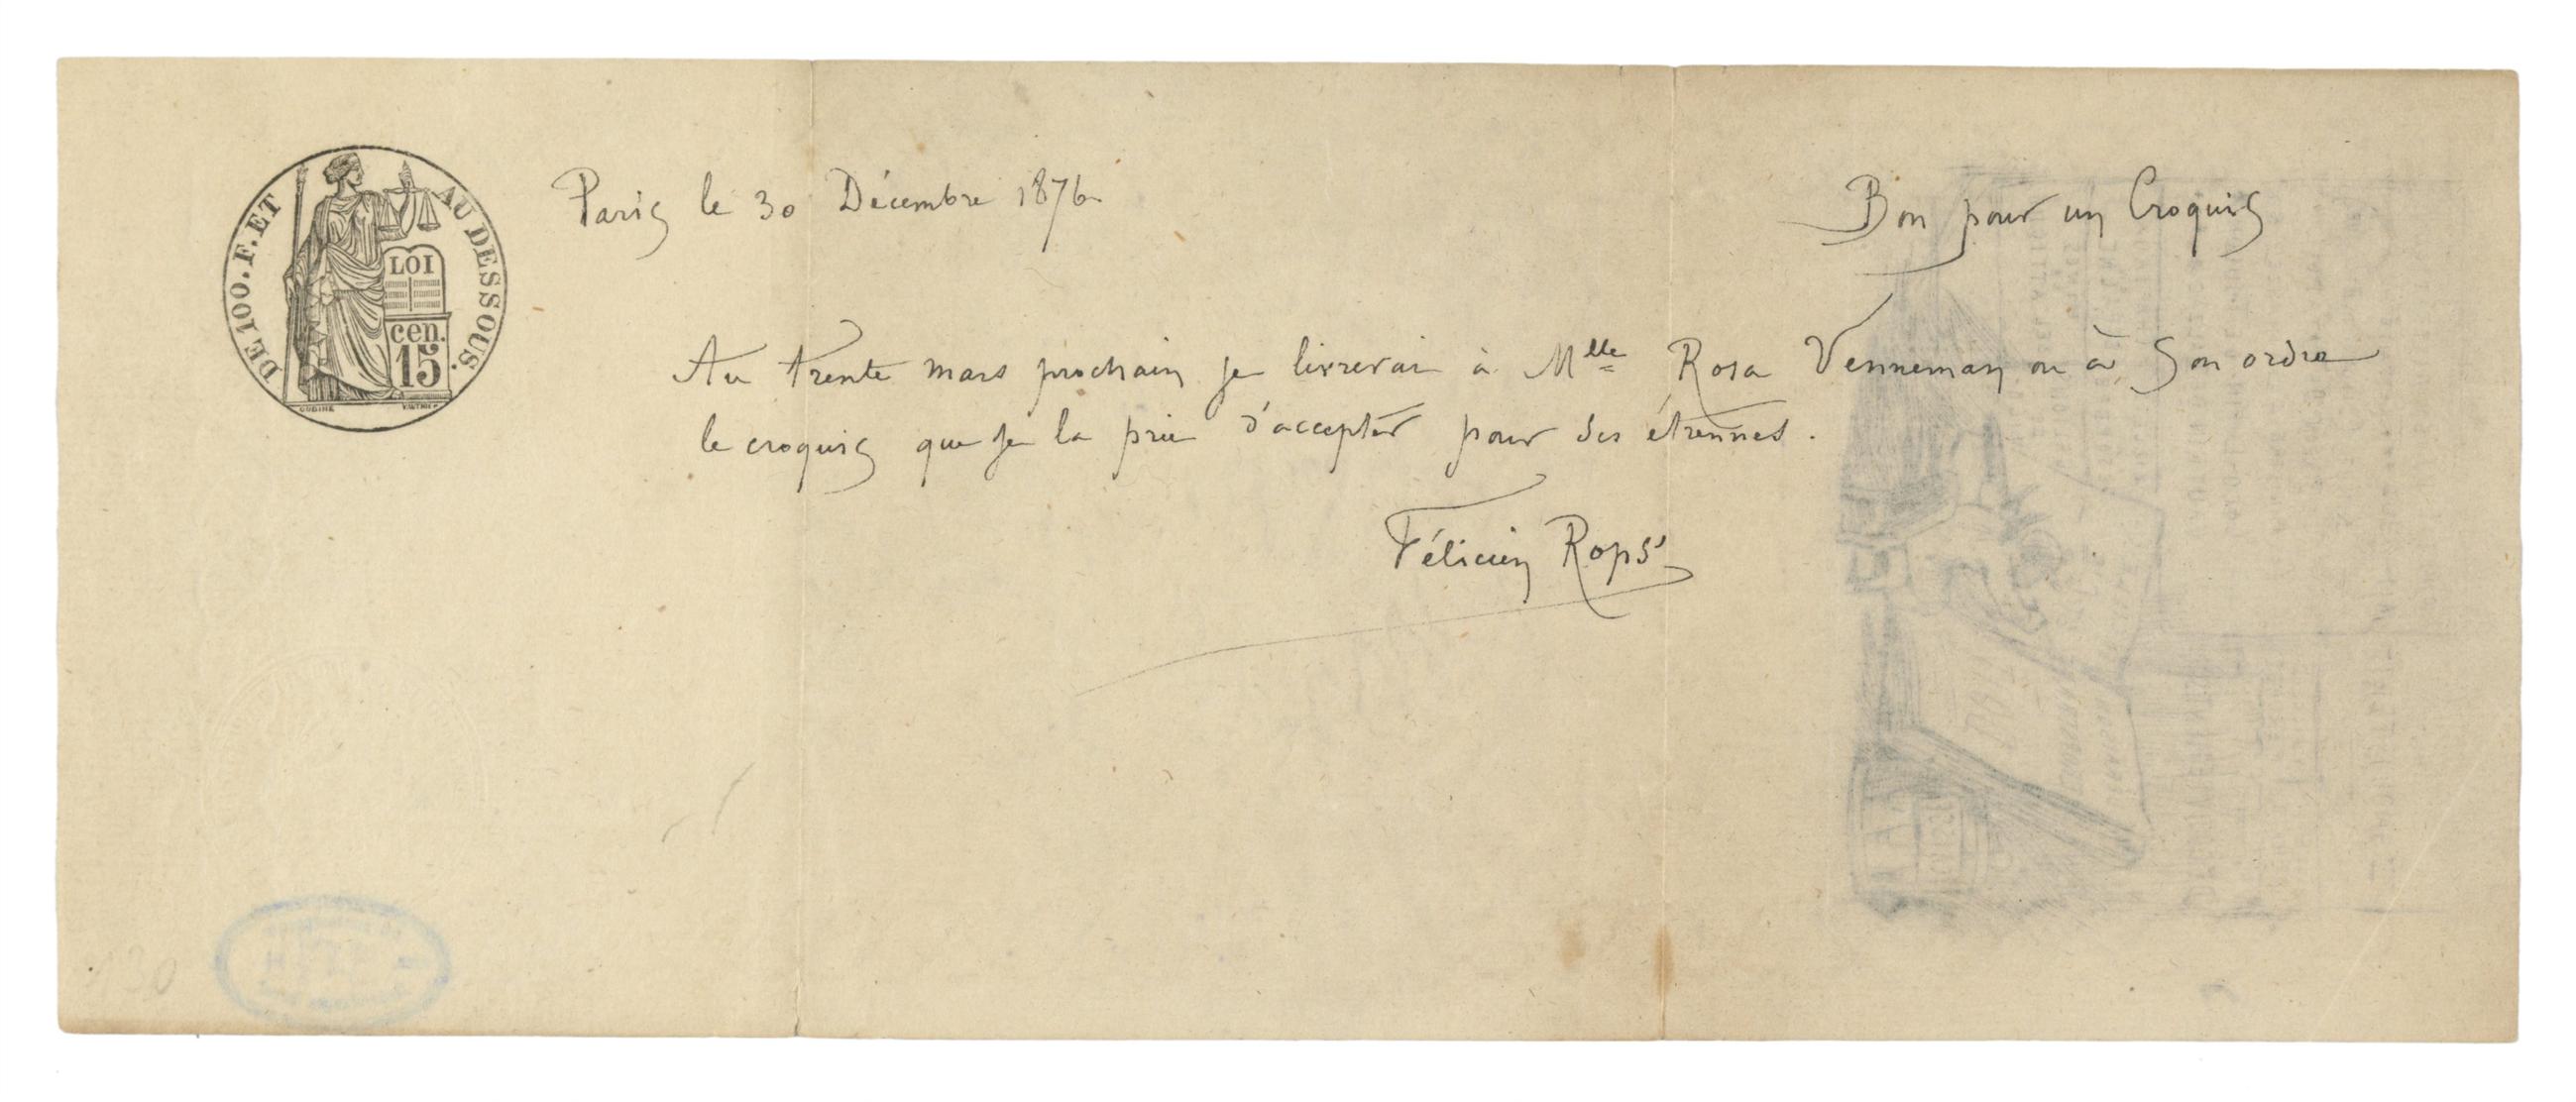 DE 100. F. ET AU DESSOUS.
LOI
cen.
15
Paris le 30 Décembre 1876
Bon pour un Croquis
Au trente mars prochain je livrerai à Mlle Rosa Venneman ou à Son ordre
le croquis que je la prie d'accepter pour ses étrennes.
Félicien Rops
130